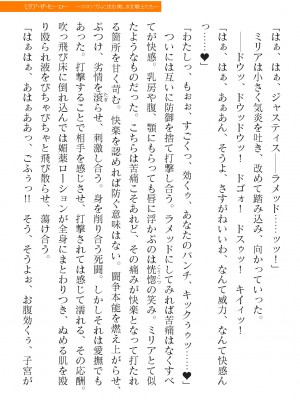 「はぁ、はぁ、ジャスティス　ラメッド……ッッ！」
ミリアは小さく気炎を吐き、改めて踏み込み、向かっていった。
ドウッ！　ドウッドウッ！　ドゴォ！　ドスゥッ！　キイィッ！
「はぁ、はぁ、あぁあん、そうよぉ、さすがねいいわ、なんて威力、なんて快感ん
っ……♥」
「わたしっ、もぉぉ、すごくっ、効くゥ、あなたのパンチ、キックぅぅッ……♥」
ついには互いに防御を捨て打撃し合う。ラメッドにしてみれば苦痛はなくすべ
てが快感。乳房や腹、顎にもらっても唇に浮かぶのは恍惚の笑み。ミリアとて似
たようなものだった。こちらは苦痛こそあれど、その痛みが快楽となって打たれ
る箇所を甘く苛む。快楽を認めれば防ぐ意味はない。闘争本能を燃え上がらせ、
ぶつけ、劣情をらせ、刺激し合う。身を削り合う死闘。しかしそれは愛撫でも
あった。打撃することで相手を感じさせ、打撃されては感じて濡れる、その応酬。
吹っ飛び床に倒れ込んでは媚薬ローションが全身にまとわりつき、ぬめる肌を殴
り殴られ液をぴちゃぴちゃと飛び散らせ、蕩け合う。
「あぁっ、あはぁああっ、ごふぅっ!!　そう、そうよぉ、お腹効くぅ、子宮が